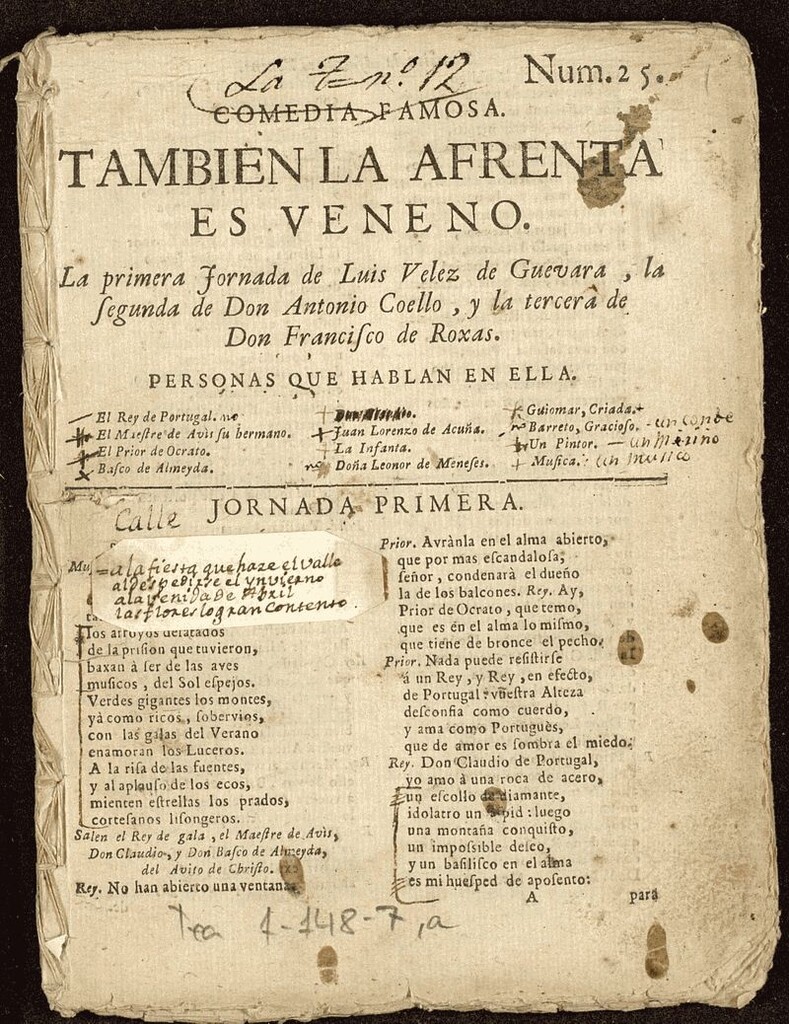 La 7 nº. 12
Num. 25.
COMEDIA FAMOSA.
TAMBIEN LA AFRENTA
ES VENENO.
La primera Jornada de Luis Velez de Guevara, la
ſegunda de Don Antonio Coello, y la tercera de
Don Franciſco de Roxas.
PERSONAS QUE HABLAN EN ELLA.
El Rey de Portugal. no
El Maestre de Avis ſu hermano.
El Prior de Ocrato.
Baſco de Almeyda.
Juan Lorenzo de Acuña.
La Infanta.
no Doña Leonor de Meneſes.
Guiomar, Criada.
no Barreto, Gracioſo. - un conde
Un Pintor. - un Marino
Muſica. un musico
JORNADA PRIMERA.
Calle
Mu = a la fiesta que haze el valle
al despedirse el ynvierno
a la venida de Abril
las flores logran contento.
los arroyos delatados
de la priſion que tuvieron,
baxan à ſer de las aves
muſicos, del Sol eſpejos.
Verdes gigantes los montes,
yà como ricos, ſobervios,
con las galas del Verano
enamoran los Luceros.
A la riſa de las fuentes,
y al aplauſo de los ecos,
mienten eſtrellas los prados,
corteſanos liſongeros.
Salen el Rey de gala, el Maeſtre de Avìs,
Don Claudio, y Don Baſco de Almeyda,
del Avito de Chriſto.
Rey. No han abierto una ventana?
Prior. Avrànla en el alma abierto,
que por mas eſcandaloſa,
ſeñor, condenarà el dueño
la de los balcones. Rey. Ay,
Prior de Ocrato, que temo,
que es en el alma lo miſmo,
que tiene de bronce el pecho.
Prior. Nada puede reſiſtirſe
à un Rey, y Rey, en efecto,
de Portugal: vueſtra Alteza
deſconfia como cuerdo,
y ama como Portuguès,
que de amor es ſombra el miedo.
Rey. Don Claudio de Portugal,
yo amo à una roca de acero,
un eſcollo de diamante,
idolatro un aſpid: luego
una montaña conquiſto,
un impoſsible deſeo,
y un baſiliſco en el alma
es mi hueſped de apoſento:
A
para
Tea 1-148-7, a